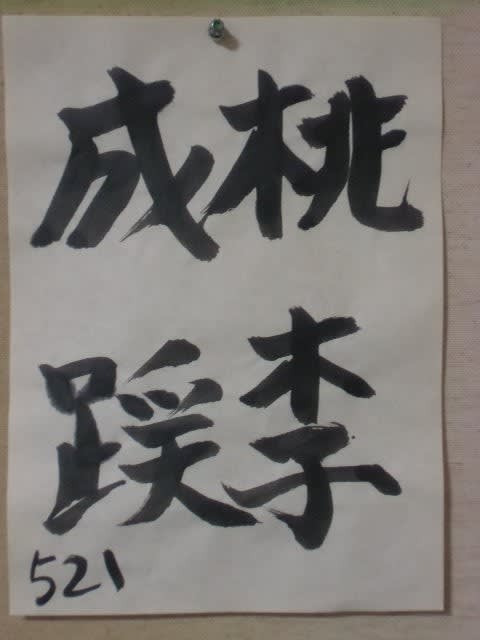 桃李
成蹊
521